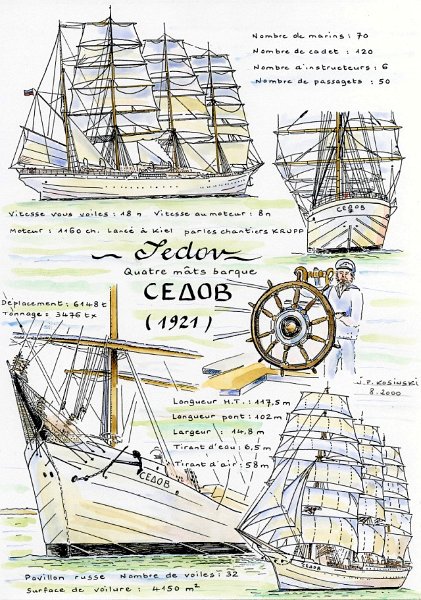 Nombre de marins : 70
Nombre de cadet : 120
Nombre d'instructeurs : 6
Nombre de passagets : 50
СЕДОВ
Vitesse vous voiles : 18 n Vitesse au moteur : 8 n
Moteur : 1160 ch. Lancé à Kiel par les chantiers KRUPP
~ Sedov ~
Quatre mâts barque
СЕДОВ
(1921)
Déplacement : 6148 t
Tonnage : 3476 tx
J.P. KOSINSKI
8.2000
Longueur H.T. : 117,5 m
Longueur pont : 102 m
Largeur : 14,8 m
Tirant d'eau : 6,5 m
Tirant d'air : 58 m
СЕДОВ
СЕДОВ
Pavillon russe Nombre de voiles : 32
Surface de voilure : 4150 m²